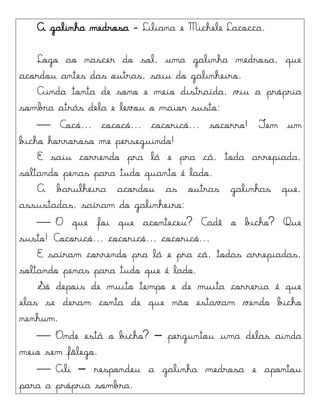 A galinha medrosa - Liliana e Michele Iacocca.
Logo ao nascer do sol, uma galinha medrosa, que
acordou antes das outras, saiu do galinheiro.
Ainda tonta de sono e meio distraída, viu a própria
sombra atrás dela e levou o maior susto:
— Cocó... cococó... cocoricó... socorro! Tem um
bicho horroroso me perseguindo!
E saiu correndo pra lá e pra cá, toda arrepiada,
soltando penas para tudo quanto é lado.
A barulheira acordou as outras galinhas que,
assustadas, saíram do galinheiro:
— O que foi que aconteceu? Cadê o bicho? Que
susto! Cocoricó... cocoricó... cocoricó...
E saíram correndo pra lá e pra cá, todas arrepiadas,
soltando penas para tudo que é lado.
Só depois de muito tempo e de muita correria é que
elas se deram conta de que não estavam vendo bicho
nenhum.
— Onde está o bicho? – perguntou uma delas ainda
meio sem fôlego.
— Ali – respondeu a galinha medrosa e apontou
para a própria sombra.